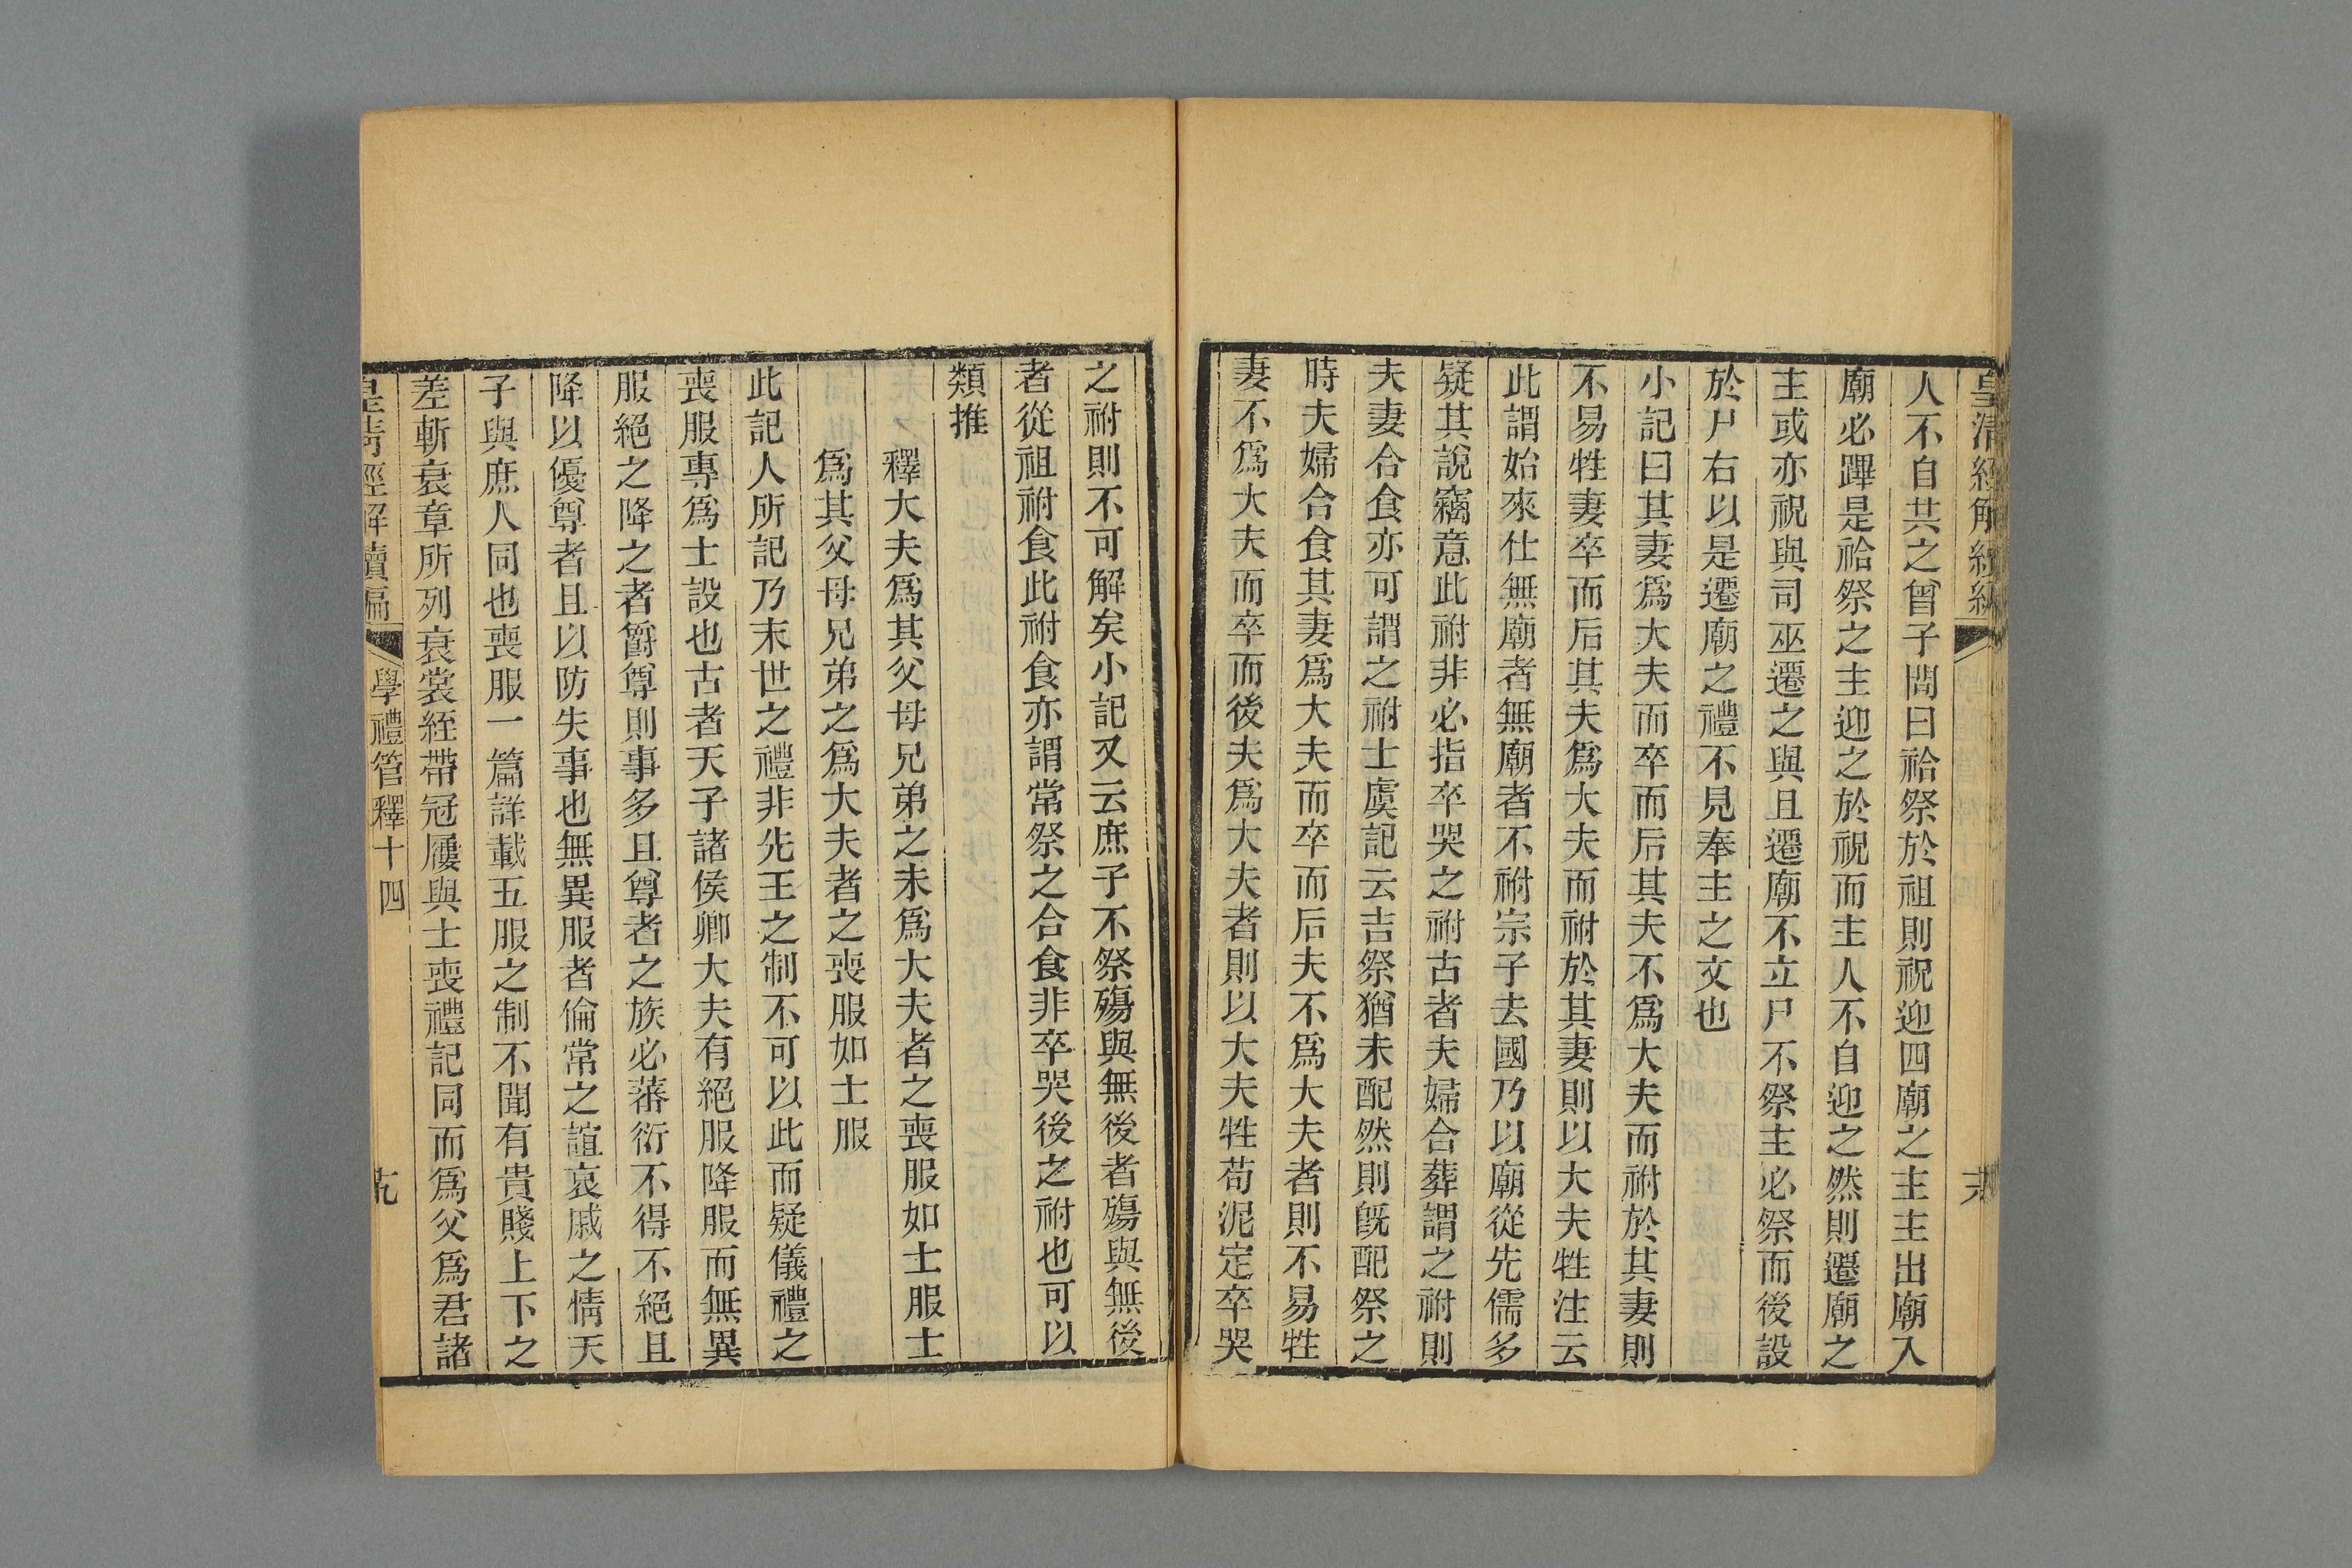 皇清經解續編
人不自共之曾子問曰祫祭於祖則祝迎四廟之主主出廟入
廟必蹕是祫祭之主迎之於祝而主人不自迎之然則遷廟之
主或亦祝與司巫遷之與且遷廟不立尸不祭主必祭而後設
於尸右以是遷廟之禮不見奉主之文也
小記曰其妻爲大夫而卒而后其夫不爲大夫而祔於其妻則
不易牲妻卒而后其夫爲大夫而祔於其妻則以大夫牲注云
此謂始來仕無廟者無廟者不祔宗子去國乃以廟從先儒多
疑其說竊意此祔非必指卒哭之祔古者夫婦合葬謂之祔則
夫妻合食亦可謂之祔士虞記云吉祭猶未配然則旣配祭之
時夫婦合食其妻爲大夫而卒而后夫不爲大夫者則不易牲
妻不爲大夫而卒而後夫爲大夫者則以大夫牲苟泥定卒哭
之祔則不可解矣小記又云庶子不祭殤與無後者殤與無後
者從祖祔食此祔食亦謂常祭之合食非卒哭後之祔也可以
類推
釋大夫爲其父母兄弟之未爲大夫者之喪服如士服士
爲其父母兄弟之爲大夫者之喪服如士服
此記人所記乃末世之禮非先王之制不可以此而疑儀禮之
喪服專爲士設也古者天子諸侯卿大夫有絕服降服而無異
服絕之降之者爵尊則事多且尊者之族必蕃衍不得不絕且
降以優尊者且以防失事也無異服者倫常之誼哀戚之情天
子與庶人同也喪服一篇詳載五服之制不聞有貴賤上下之
差斬衰章所列衰裳絰帶冠屨與士喪禮記同而爲父爲君諸
皇清經解續編
學禮管釋十四